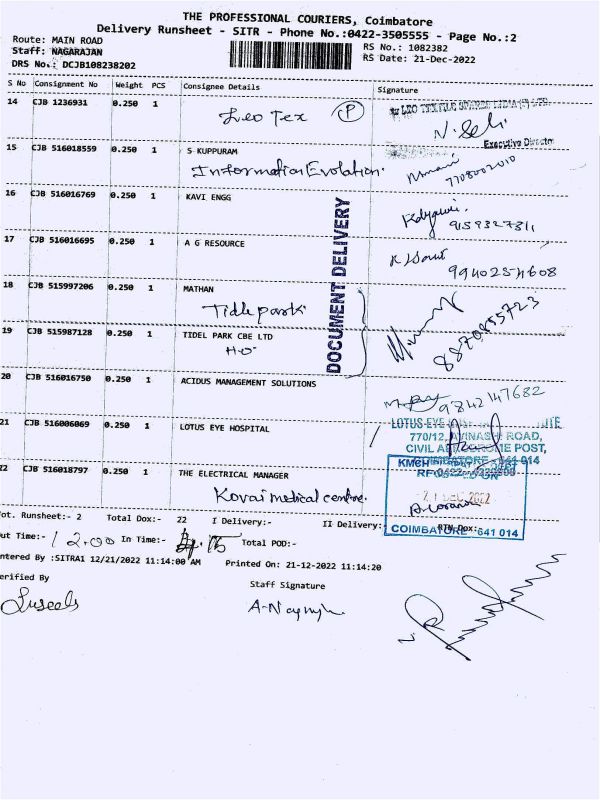 THE PROFESSIONAL COURIERS, Coimbatore
Delivery Runsheet - SITR - Phone No.:0422-3505555 - Page No.:2
Route: MAIN ROAD
Staff: NAGARAJAN
DRS No.: DCJB108238202
RS No.: 1082382
RS Date: 21-Dec-2022
S No Consignment No Weight PCS Consignee Details Signature
14 CJB 1236931 0.250 1 Leo Tex P
Executive Director
15 CJB 516018559 0.250 1 S KUPPURAM
Information Evolation. 7708002010
16 CJB 516016769 0.250 1 KAVI ENGG
9159327311
17 CJB 516016695 0.250 1 A G RESOURCE
9940254608
DOCUMENT DELIVERY
18 CJB 515997206 0.250 1 MATHAN
Tidle park
8870855723
19 CJB 515987128 0.250 1 TIDEL PARK CBE LTD
HO
20 CJB 516016750 0.250 1 ACIDUS MANAGEMENT SOLUTIONS
9842147682
21 CJB 516006069 0.250 1 LOTUS EYE HOSPITAL
LOTUS EYE
770/12, AVINASHI ROAD,
CIVIL AERODROME POST,
COIMBATORE - 641 014
22 CJB 516018797 0.250 1 THE ELECTRICAL MANAGER
Kovai medical centre.
KMCH
21 DEC 2022
COIMBATORE - 641 014
Tot. Runsheet:- 2 Total Dox:- 22 I Delivery:- II Delivery: RTN Dox:
Out Time:- 12.00 In Time:- Total POD:-
Entered By :SITRA1 12/21/2022 11:14:00 AM Printed On: 21-12-2022 11:14:20
Verified By Staff Signature